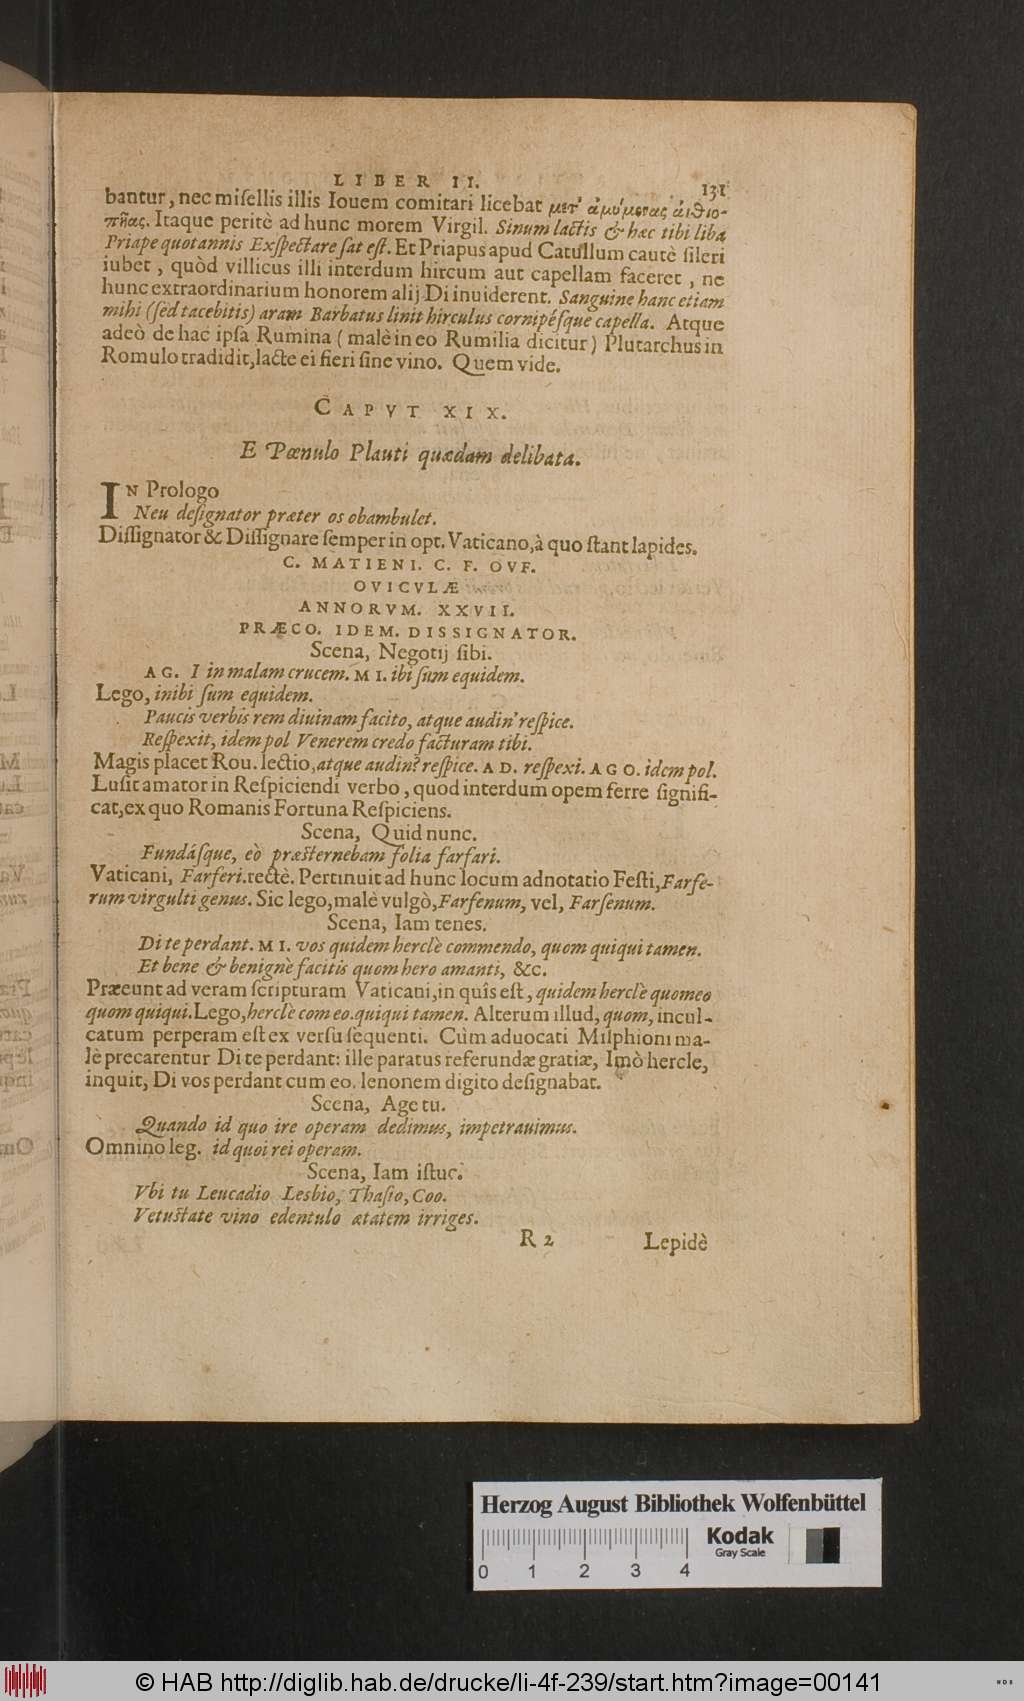 LIBER II. 131
bantur, nec miſellis illis Iouem comitari licebat μετ' ἀμύμονας αἰθιο-
πῆας. Itaque peritè ad hunc morem Virgil. Sinum lactis & hæc tibi liba
Priape quotannis Exſpectare ſat eſt. Et Priapus apud Catullum cautè ſileri
iubet, quòd villicus illi interdum hircum aut capellam faceret, ne
hunc extraordinarium honorem alij Di inuiderent. Sanguine hanc etiam
mihi (ſed tacebitis) aram Barbatus linit hirculus cornipéſque capella. Atque
adeò de hac ipſa Rumina (malè in eo Rumilia dicitur) Plutarchus in
Romulo tradidit, lacte ei fieri ſine vino. Quem vide.
CAPVT XIX.
E Pœnulo Plauti quædam delibata.
IN Prologo
Neu deſignator præter os obambulet.
Diſſignator & Diſſignare ſemper in opt. Vaticano, à quo ſtant lapides.
C. MATIENI. C. F. OVF.
OVICVLÆ
ANNORVM. XXVII.
PRÆCO. IDEM. DISSIGNATOR.
Scena, Negotij ſibi.
AG. I in malam crucem. MI. ibi ſum equidem.
Lego, inibi ſum equidem.
Paucis verbis rem diuinam facito, atque audin' reſpice.
Reſpexit, idem pol Venerem credo facturam tibi.
Magis placet Rou. lectio, atque audin? reſpice. AD. reſpexi. AGO. idem pol.
Luſit amator in Reſpiciendi verbo, quod interdum opem ferre ſignifi-
cat, ex quo Romanis Fortuna Reſpiciens.
Scena, Quid nunc.
Fundáſque, eò præſternebam folia farfari.
Vaticani, Farferi. rectè. Pertinuit ad hunc locum adnotatio Feſti, Farfe-
rum virgulti genus. Sic lego, malè vulgò, Farfenum, vel, Farſenum.
Scena, Iam tenes.
Di te perdant. MI. vos quidem herclè commendo, quom quiqui tamen.
Et bene & benignè facitis quom hero amanti, &c.
Præeunt ad veram ſcripturam Vaticani, in quîs eſt, quidem herclè quomeo
quom quiqui. Lego, herclè com eo. quiqui tamen. Alterum illud, quom, incul-
catum perperam eſt ex verſu ſequenti. Cùm aduocati Milphioni ma-
lè precarentur Di te perdant: ille paratus referundæ gratiæ, Imò hercle,
inquit, Di vos perdant cum eo. lenonem digito deſignabat.
Scena, Age tu.
Quando id quo ire operam dedimus, impetrauimus.
Omnino leg. id quoi rei operam.
Scena, Iam iſtuc.
Vbi tu Leucadio Lesbio, Thaſio, Coo.
Vetuſtate vino edentulo ætatem irriges.
R 2 Lepidè
Herzog August Bibliothek Wolfenbüttel
Kodak
Gray Scale
0 1 2 3 4
© HAB http://diglib.hab.de/drucke/li-4f-239/start.htm?image=00141